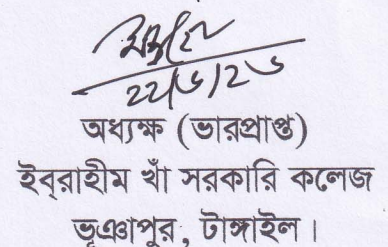 অধ্যক্ষ (ভারপ্রাপ্ত)
ইব্‌রাহীম খাঁ সরকারি কলেজ
ভূঞাপুর, টাঙ্গাইল।